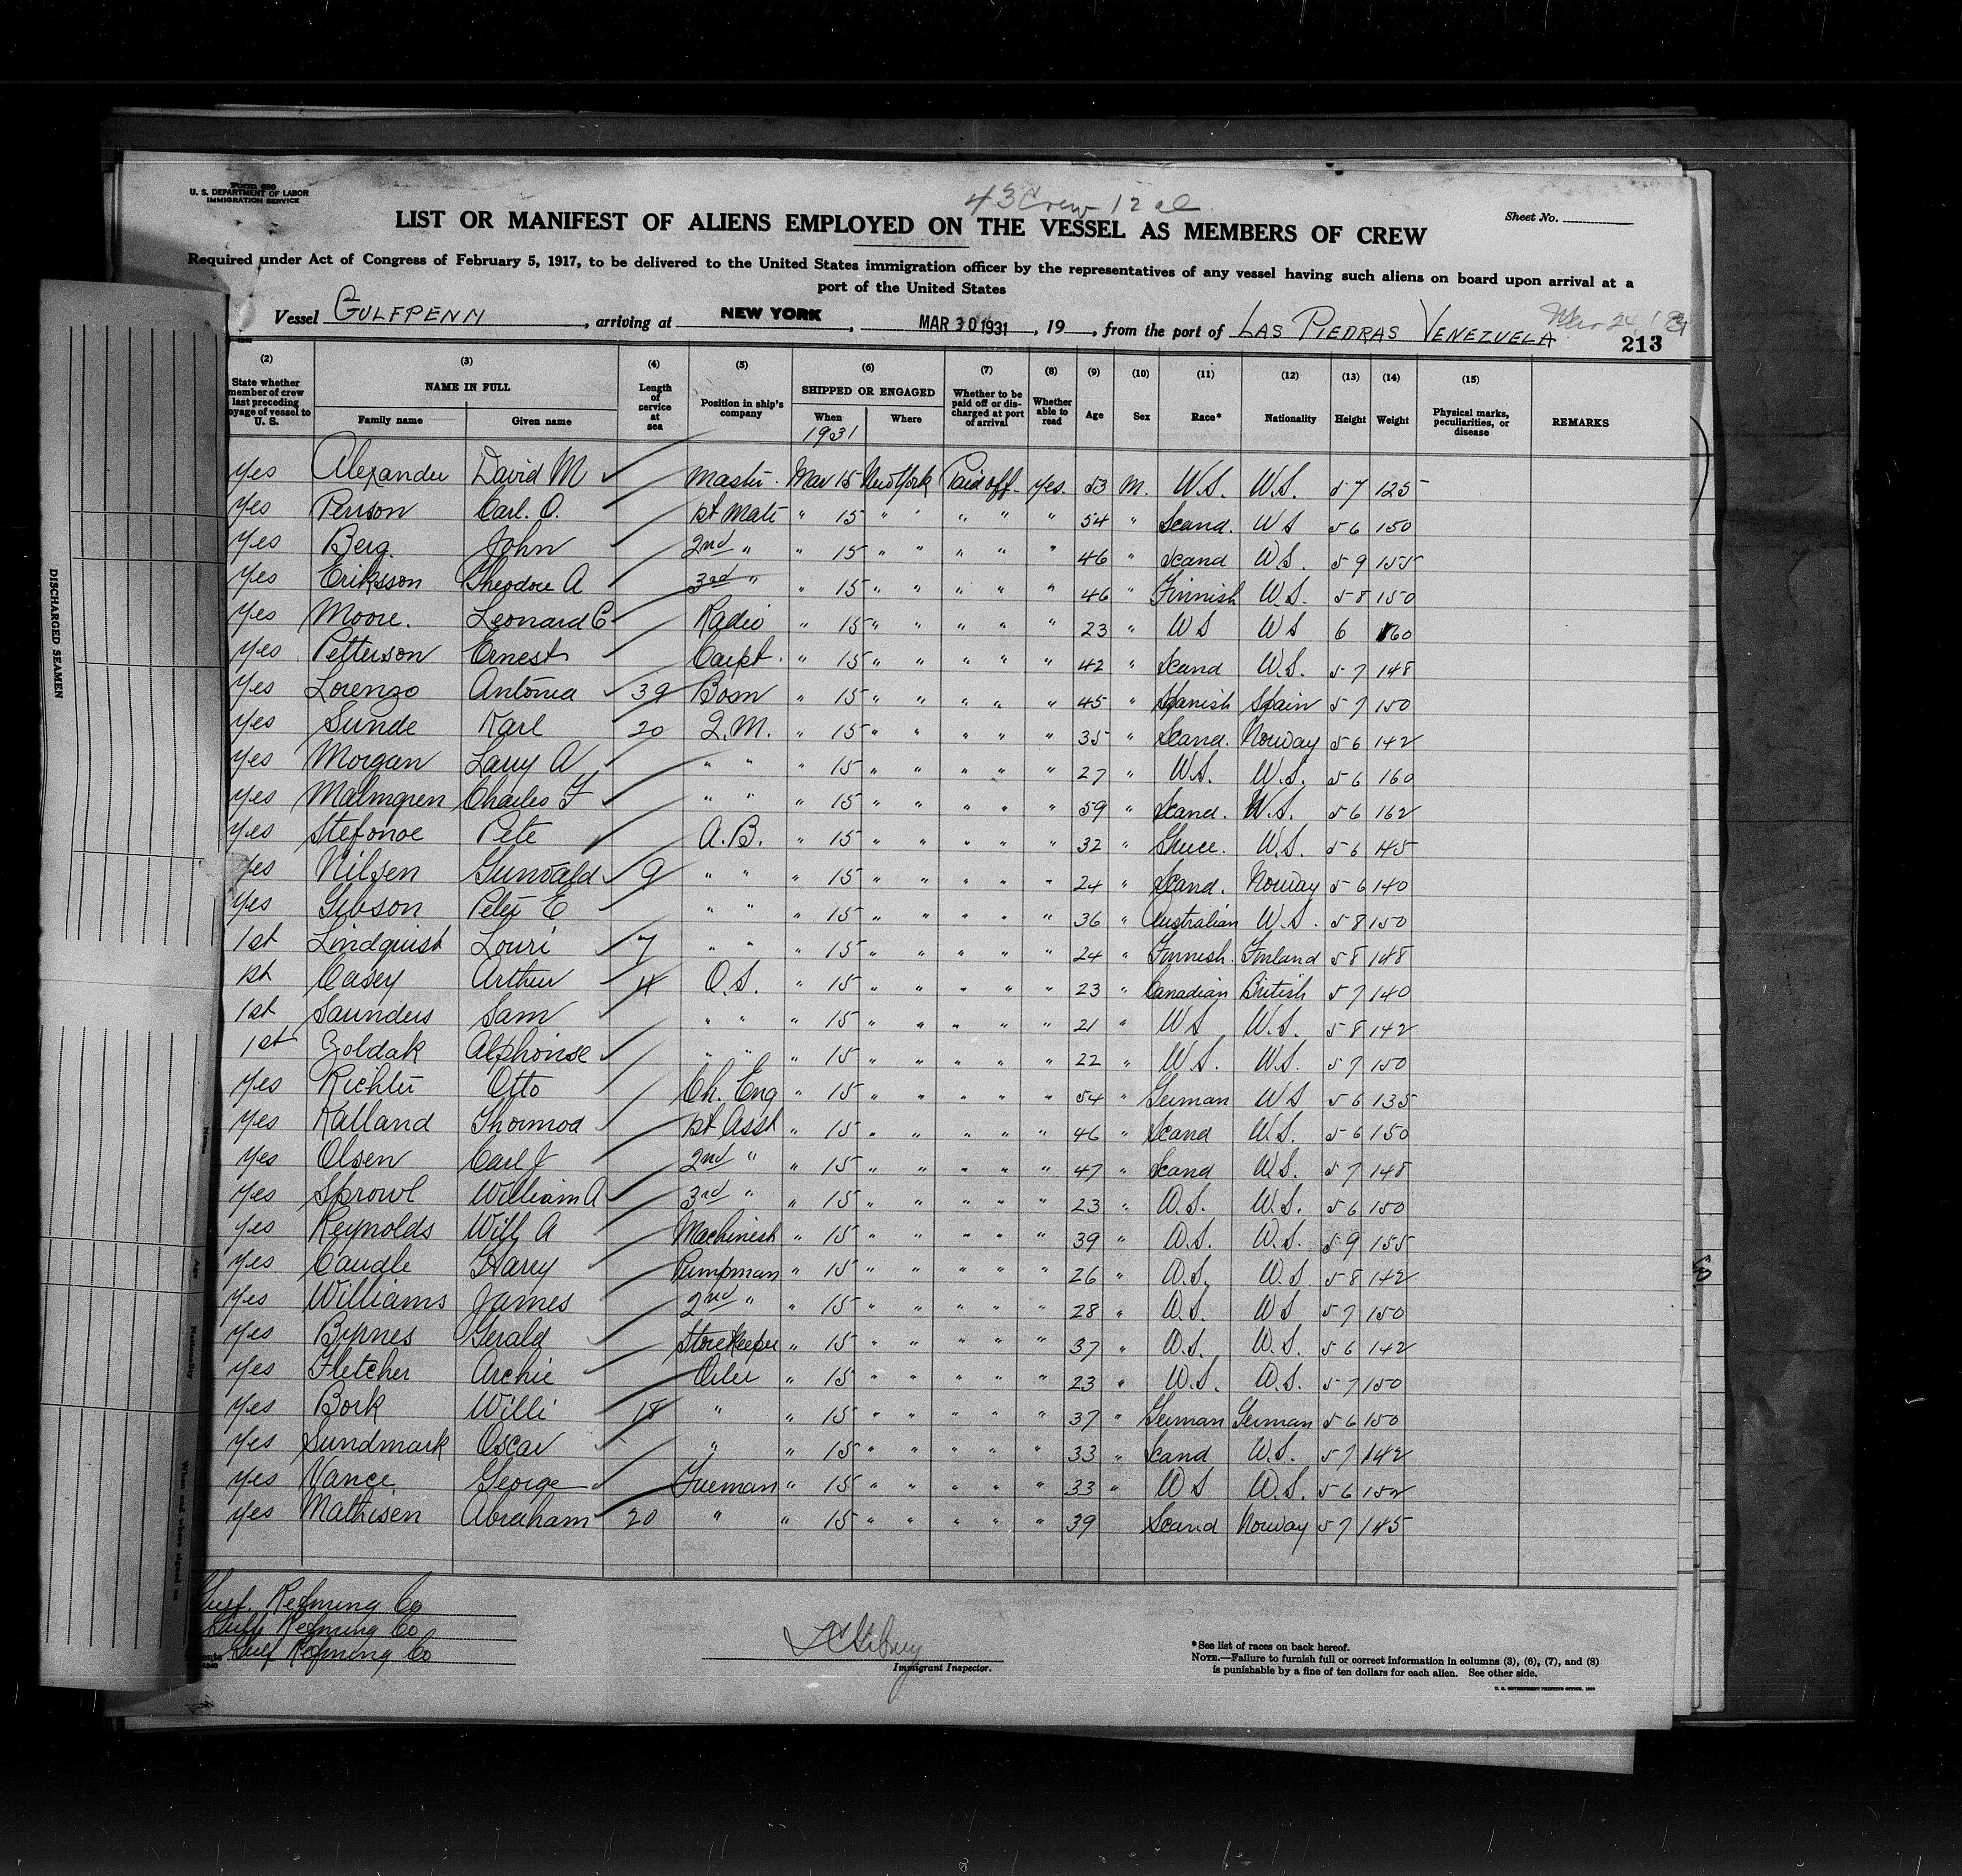 Form 680
U. S. DEPARTMENT OF LABOR
IMMIGRATION SERVICE
43 Crew 12 al
Sheet No.
LIST OR MANIFEST OF ALIENS EMPLOYED ON THE VESSEL AS MEMBERS OF CREW
Required under Act of Congress of February 5, 1917, to be delivered to the United States immigration officer by the representatives of any vessel having such aliens on board upon arrival at a
port of the United States
Vessel GULFPENN, arriving at NEW YORK, MAR 30 1931, 19, from the port of LAS PIEDRAS VENEZUELA Mar 24, 1931
213
(2) (3) (4) (5) (6) (7) (8) (9) (10) (11) (12) (13) (14) (15)
State whether member of crew last preceding voyage of vessel to U. S. NAME IN FULL Family name Given name Length of service at sea Position in ship's company SHIPPED OR ENGAGED When Where Whether to be paid off or discharged at port of arrival Whether able to read Age Sex Race* Nationality Height Weight Physical marks, peculiarities, or disease REMARKS
1931
Yes Alexander David M Master Mar 15 New York Paid off Yes 53 M. U.S. U.S. 5 7 125
Yes Person Carl. O. 1st Mate " 15 " " " " " 54 " Scand. U.S 5 6 150
Yes Berg. John 2nd " " 15 " " " " " 46 " Scand U.S. 5 9 155
Yes Eriksson Theodore A 3rd " " 15 " " " " " 46 " Finnish U.S. 5 8 150
Yes Moore. Leonard C Radio " 15 " " " " " 23 " U S U S 6 160
Yes Petterson Ernest Carpt. " 15 " " " " " 42 " Scand U.S. 5 7 148
Yes Lorenzo Antonia 39 Bosn " 15 " " " " " 45 " Spanish Spain 5 7 150
Yes Sunde Karl 20 Q.M. " 15 " " " " " 35 " Scand. Norway 5 6 142
Yes Morgan Larry A " " " 15 " " " " " 27 " U.S. U.S. 5 6 160
Yes Malmgren Charles F " " " 15 " " " " " 59 " Scand. U.S. 5 6 162
Yes Stefonoe Pete A.B. " 15 " " " " " 32 " Greece. U.S. 5 6 145
Yes Nilsen Gunvald 9 " " " 15 " " " " " 24 " Scand. Norway 5 6 140
Yes Gibson Peter E " " " 15 " " " " " 36 " Australian U.S. 5 8 150
1st Lindquist Louri 7 " " " 15 " " " " " 24 " Finnish. Finland 5 8 148
1st Casey Arthur 4 O.S. " 15 " " " " " 23 " Canadian British 5 7 140
1st Saunders Sam " " " 15 " " " " " 21 " U S U.S. 5 8 142
1st Zoldak Alphonse " " " 15 " " " " " 22 " U.S. U.S. 5 7 150
Yes Richter Otto Ch. Eng " 15 " " " " " 54 " German U S 5 6 135
Yes Kalland Thormod 1st Asst " 15 " " " " " 46 " Scand U.S. 5 6 150
Yes Olsen Carl J 2nd " " 15 " " " " " 47 " Scand U.S. 5 7 148
Yes Sprowl William A 3rd " " 15 " " " " " 23 " U.S. U.S. 5 6 150
Yes Reynolds Will A Machinist " 15 " " " " " 39 " U.S. U.S. 5 9 155
Yes Caudle Harry Pumpman " 15 " " " " " 26 " U.S. U.S. 5 8 142
Yes Williams James 2nd " " 15 " " " " " 28 " U.S. U S 5 7 150
Yes Byrnes Gerald Storekeeper " 15 " " " " " 37 " U.S. U.S. 5 6 142
Yes Fletcher Archie Oiler " 15 " " " " " 23 " U.S. U.S. 5 7 150
Yes Bork Willi 18 " " 15 " " " " " 37 " German German 5 6 150
Yes Sundmark Oscar " " 15 " " " " " 33 " Scand U.S. 5 7 142
Yes Vance George Fireman " 15 " " " " " 33 " U S U.S. 5 6 152
Yes Mathisen Abraham 20 " " 15 " " " " " 39 Scand Norway 5 7 145
Gulf Refining Co
Gulf Refining Co
Gulf Refining Co
Immigrant Inspector.
*See list of races on back hereof.
NOTE.—Failure to furnish full or correct information in columns (3), (6), (7), and (8)
is punishable by a fine of ten dollars for each alien. See other side.
U. S. GOVERNMENT PRINTING OFFICE: 1930
DISCHARGED SEAMEN
Name
Age
Nationality
When and where signed on